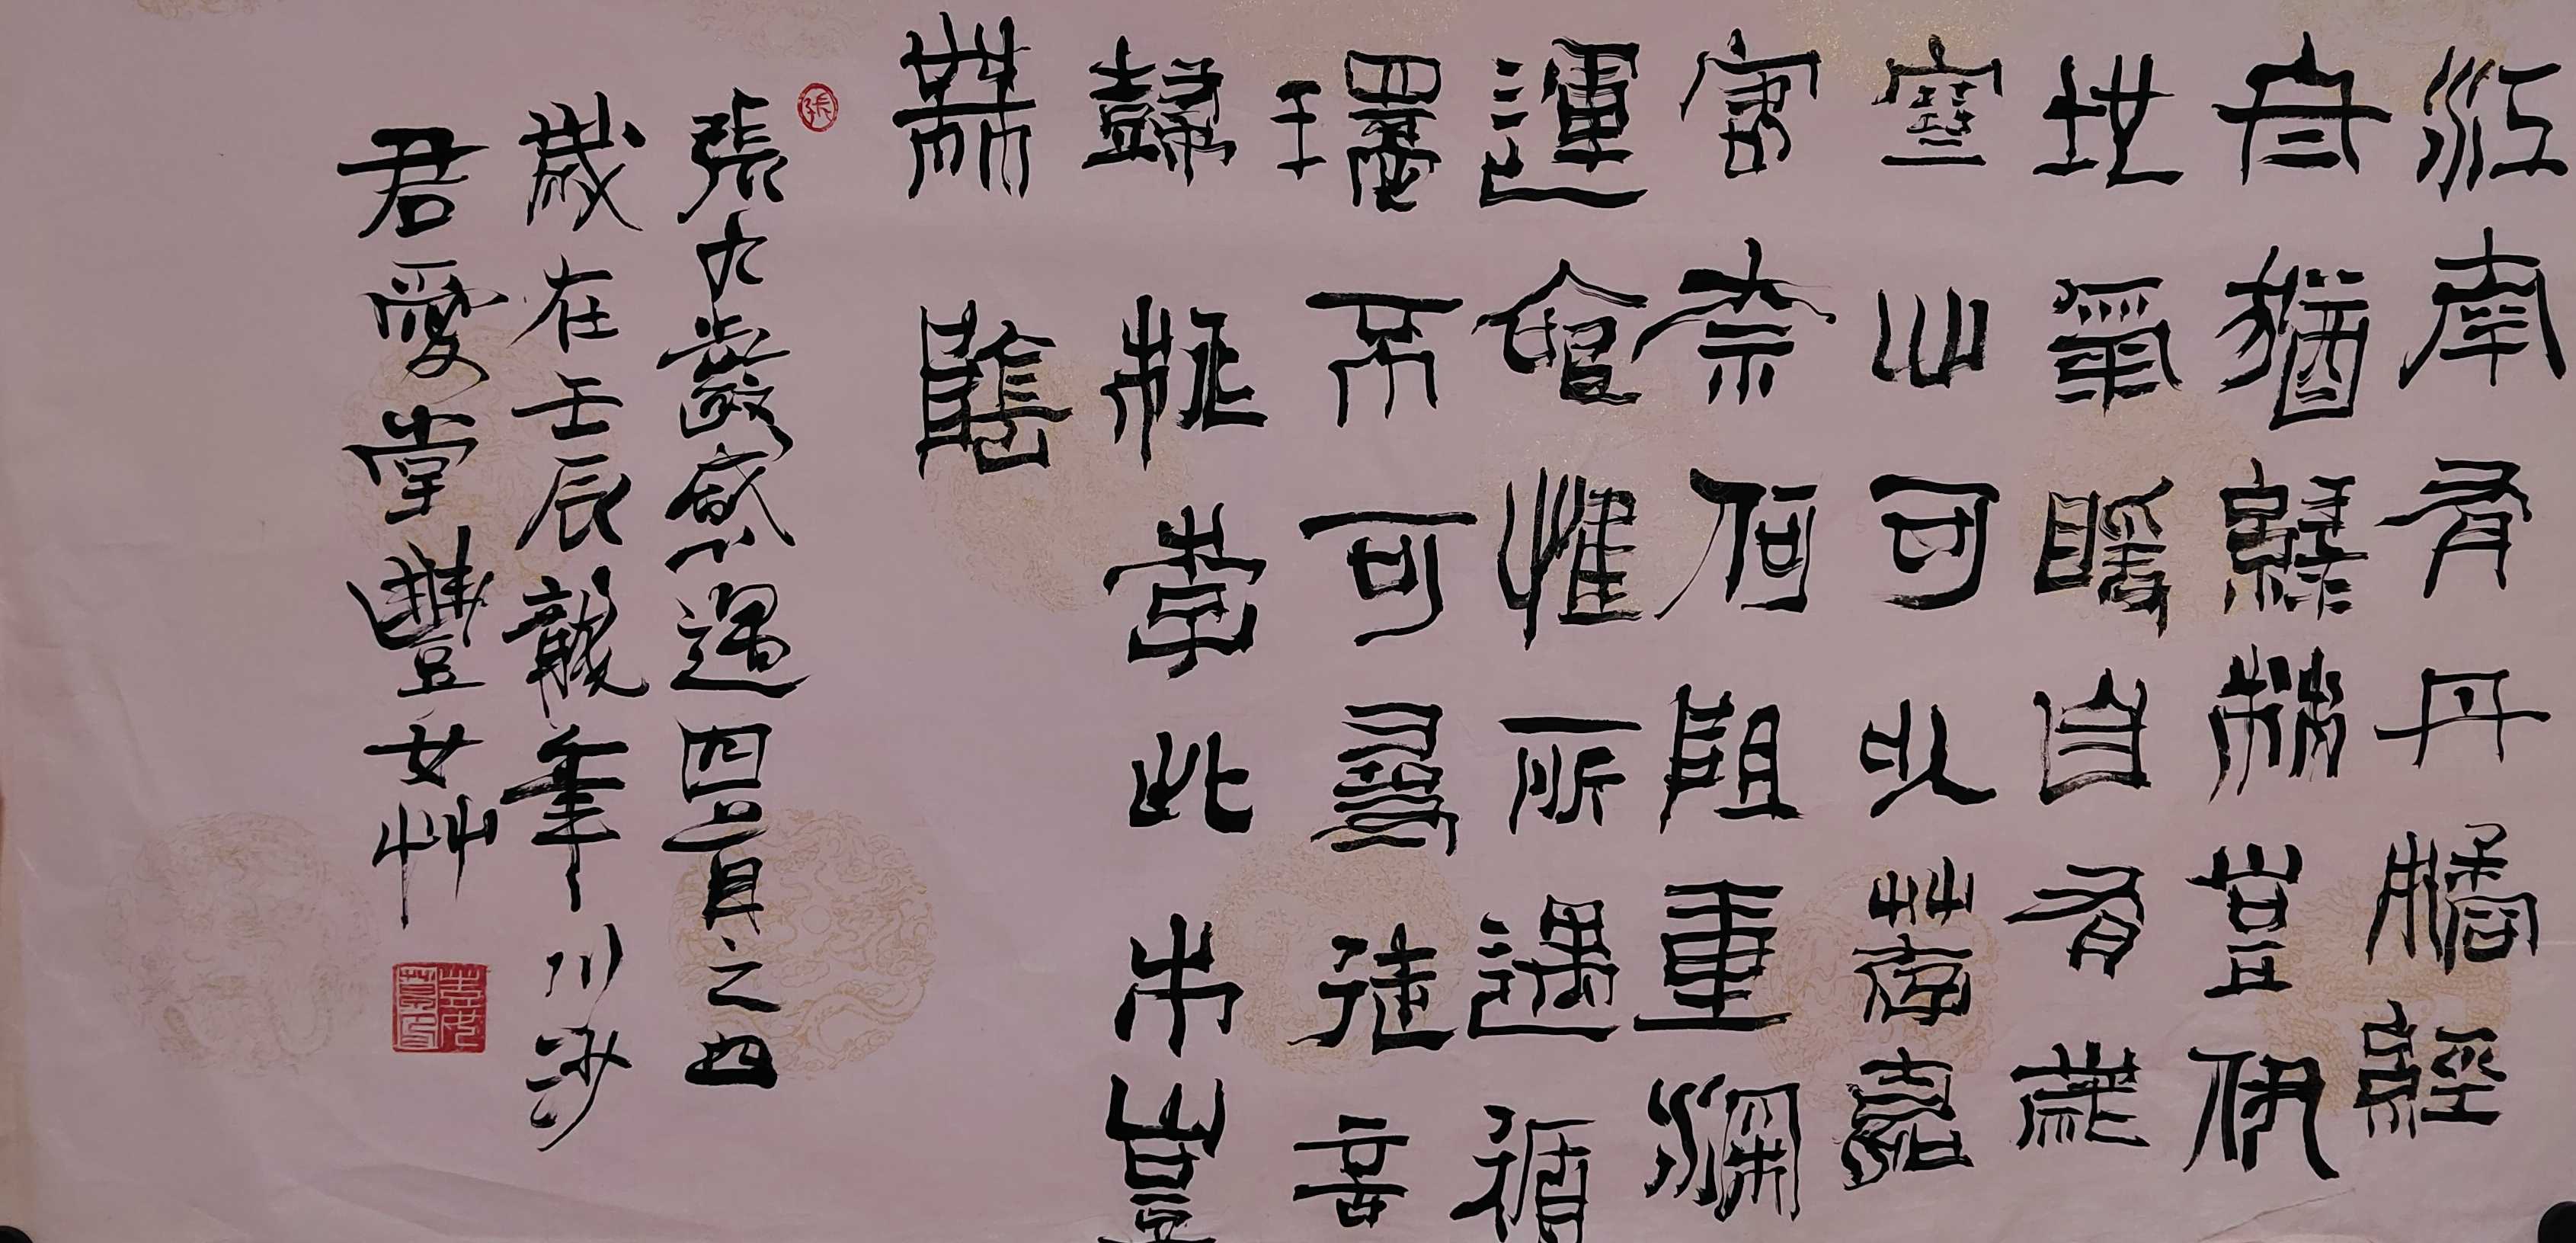 江南有丹橘經
冬猶綠林豈伊
地氣暖自有歲
寒心可以薦嘉
客奈何阻重深
運命惟所遇循
環不可尋徒言
樹桃李此木豈
無陰
張
張九齡感遇四首之四
歲在壬辰龍年川沙
君愛堂豐女艸